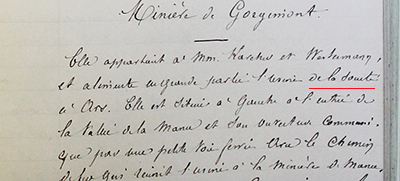 Minière de Gorgimont.
Elle appartient à Mm. Karcher et Westermann,
et alimente en grande partie l'usine de la Sauté
à Ars. Elle est située à Gauche à l'entrée de
la Vallée de la Mance et son ouverture communi-
que par une petite voie ferrée avec le Chemin
de fer qui réunit l'usine à la minière de Mance,